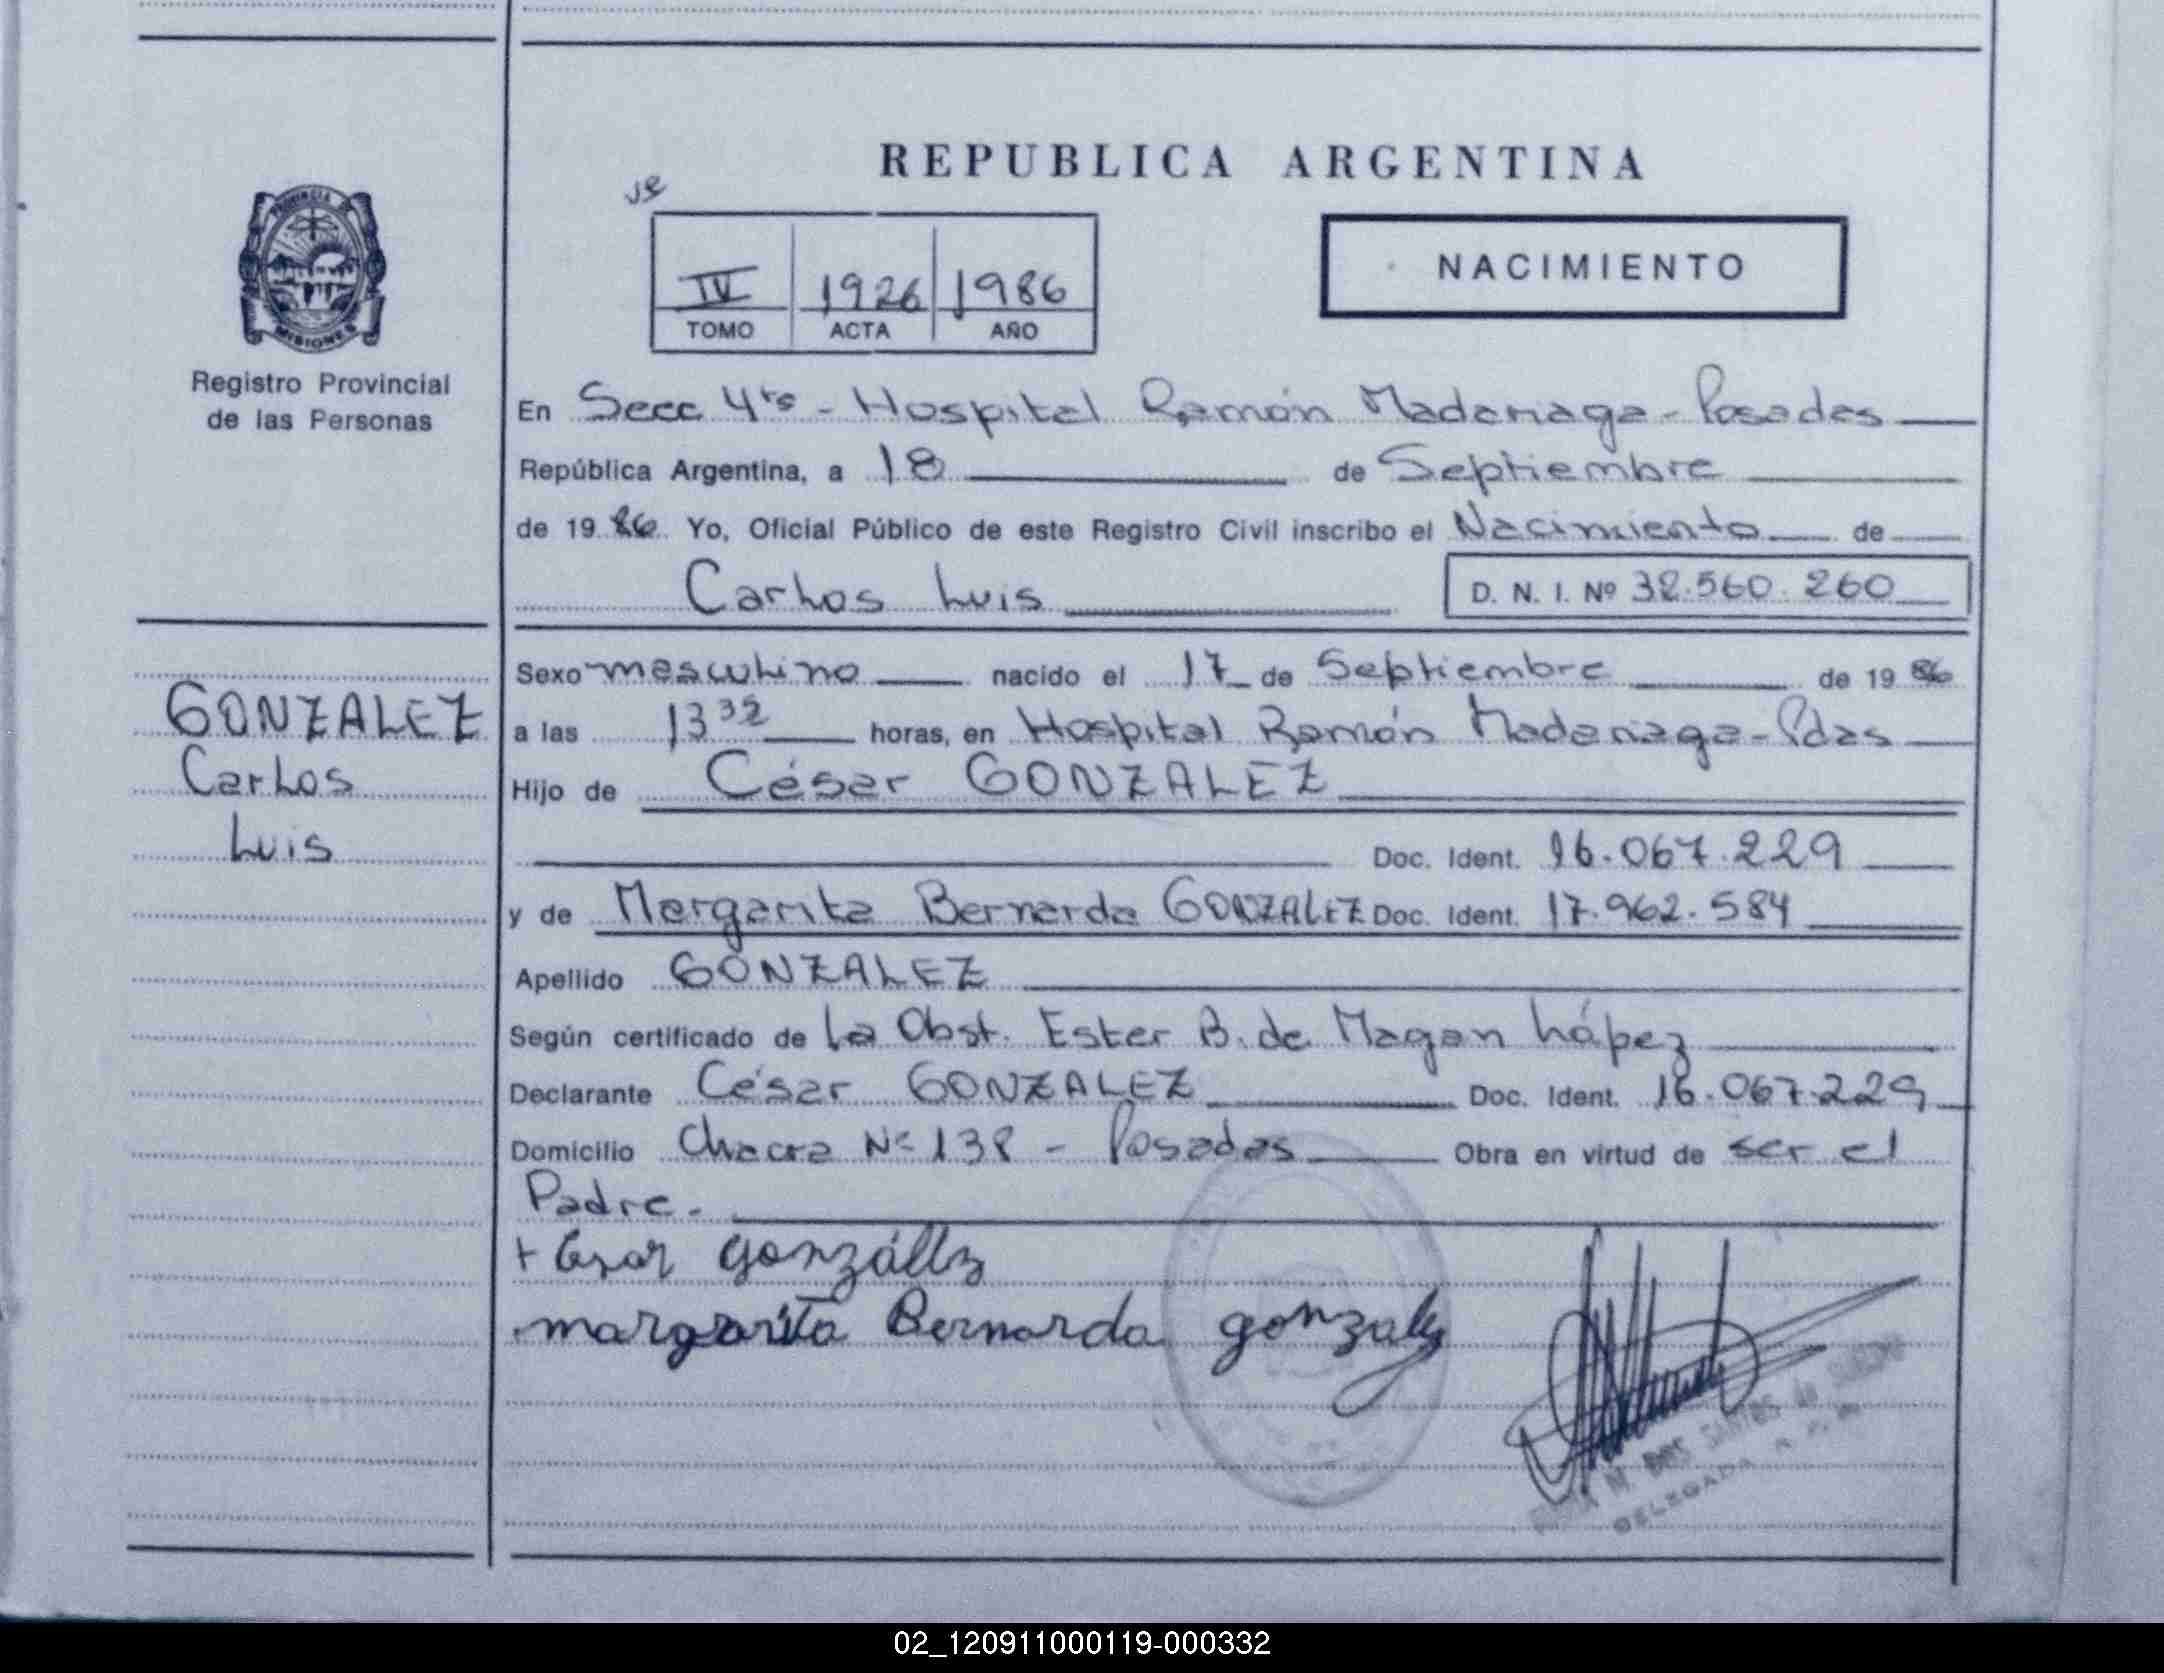 REPUBLICA ARGENTINA
PROVINCIA DE
MISIONES
Registro Provincial
de las Personas
IV 1926 1986
TOMO ACTA AÑO
NACIMIENTO
En Secc 4ta - Hospital Ramón Madariaga - Posadas
República Argentina, a 18 de Septiembre
de 1986 Yo, Oficial Público de este Registro Civil inscribo el Nacimiento de
Carlos Luis D. N. I. Nº 32.560.260
GONZALEZ
Carlos
Luis
Sexo masculino nacido el 17 de Septiembre de 1986
a las 13 32 horas, en Hospital Ramón Madariaga - Pdas
Hijo de César GONZALEZ
Doc. Ident. 16.067.229
y de Margarita Bernarda GONZALEZ Doc. Ident. 17.962.584
Apellido GONZALEZ
Según certificado de La Obst. Ester B. de Magan López
Declarante César GONZALEZ Doc. Ident. 16.067.229
Domicilio Chacra Nº 138 - Posadas Obra en virtud de ser el
Padre.
+ Cesar gonzáles
margarita Bernarda gonzalez
N. DOS SANTOS de
DELEGADA
02_120911000119-000332